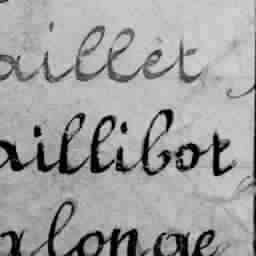 aillet
aillibot
alonge